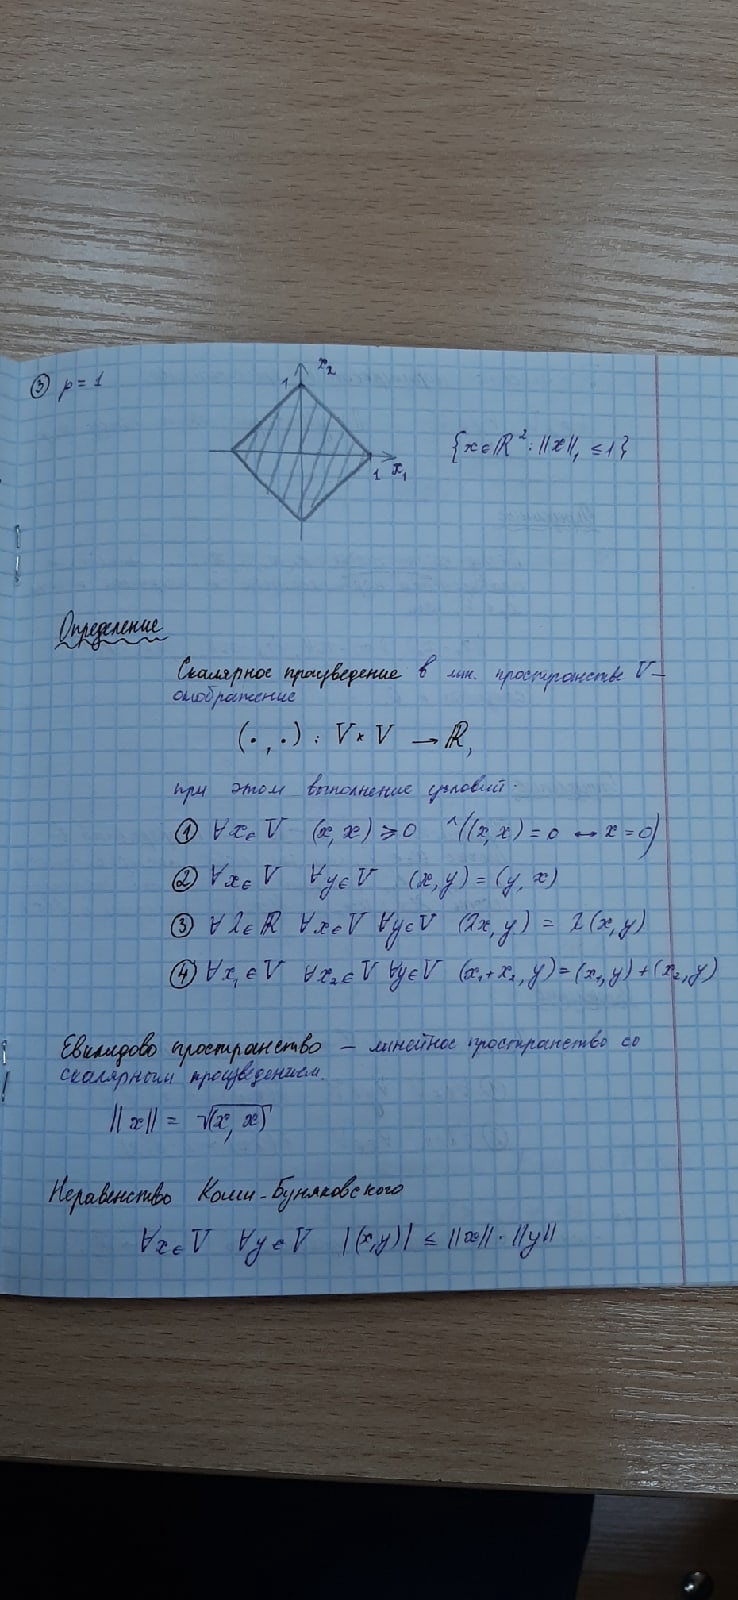 ③ p = 1
x₂
1
1 x₁
{x∈ℝ²: ||x||₁ ≤ 1}
Определение
Скалярное произведение в лин. пространстве V –
отображение
(·, ·) : V × V → ℝ,
при этом выполнение условий:
① ∀x∈V (x, x) ≥ 0 ^ ((x, x) = 0 ↔ x = 0)
② ∀x∈V ∀y∈V (x, y) = (y, x)
③ ∀λ∈ℝ ∀x∈V ∀y∈V (λx, y) = λ(x, y)
④ ∀x₁∈V ∀x₂∈V ∀y∈V (x₁+x₂, y) = (x₁, y) + (x₂, y)
Евклидово пространство – линейное пространство со
скалярным произведением.
||x|| = √(x, x)
Неравенство Коши-Буняковского
∀x∈V ∀y∈V |(x, y)| ≤ ||x|| · ||y||